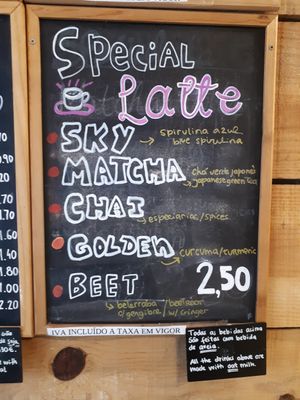 Special
Latte
SKY
spirulina azul
blue spirulina
MATCHA
chá verde japonês
japanese green tea
CHAI
especiarias/spices
GOLDEN
curcuma/turmeric
BEET
2,50
beterraba/beetroot
c/gengibre/w/Ginger
IVA INCLUÍDO A TAXA EM VIGOR
Todas as bebidas acima
são feitas com bebida
de aveia.
All the drinks above are
made with oat milk.
.90
.20